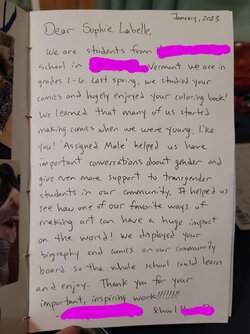 January, 2023
Dear Sophie Labelle,
We are students from
School in Vermont. We are in
grades 1-6. Last spring, we studied your
comics and hugely enjoyed your coloring book!
We learned that many of us started
making comics when we were young, like
you! 'Assigned Male' helped us have
important conversations about gender and
give even more support to transgender
students in our community. It helped us
see how one of our favorite ways of
making art can have a huge impact
on the world! We displayed your
biography and comics on our community
board so the whole school could learn
and enjoy. Thank you for your
important, inspiring work!!!!!!!!
School